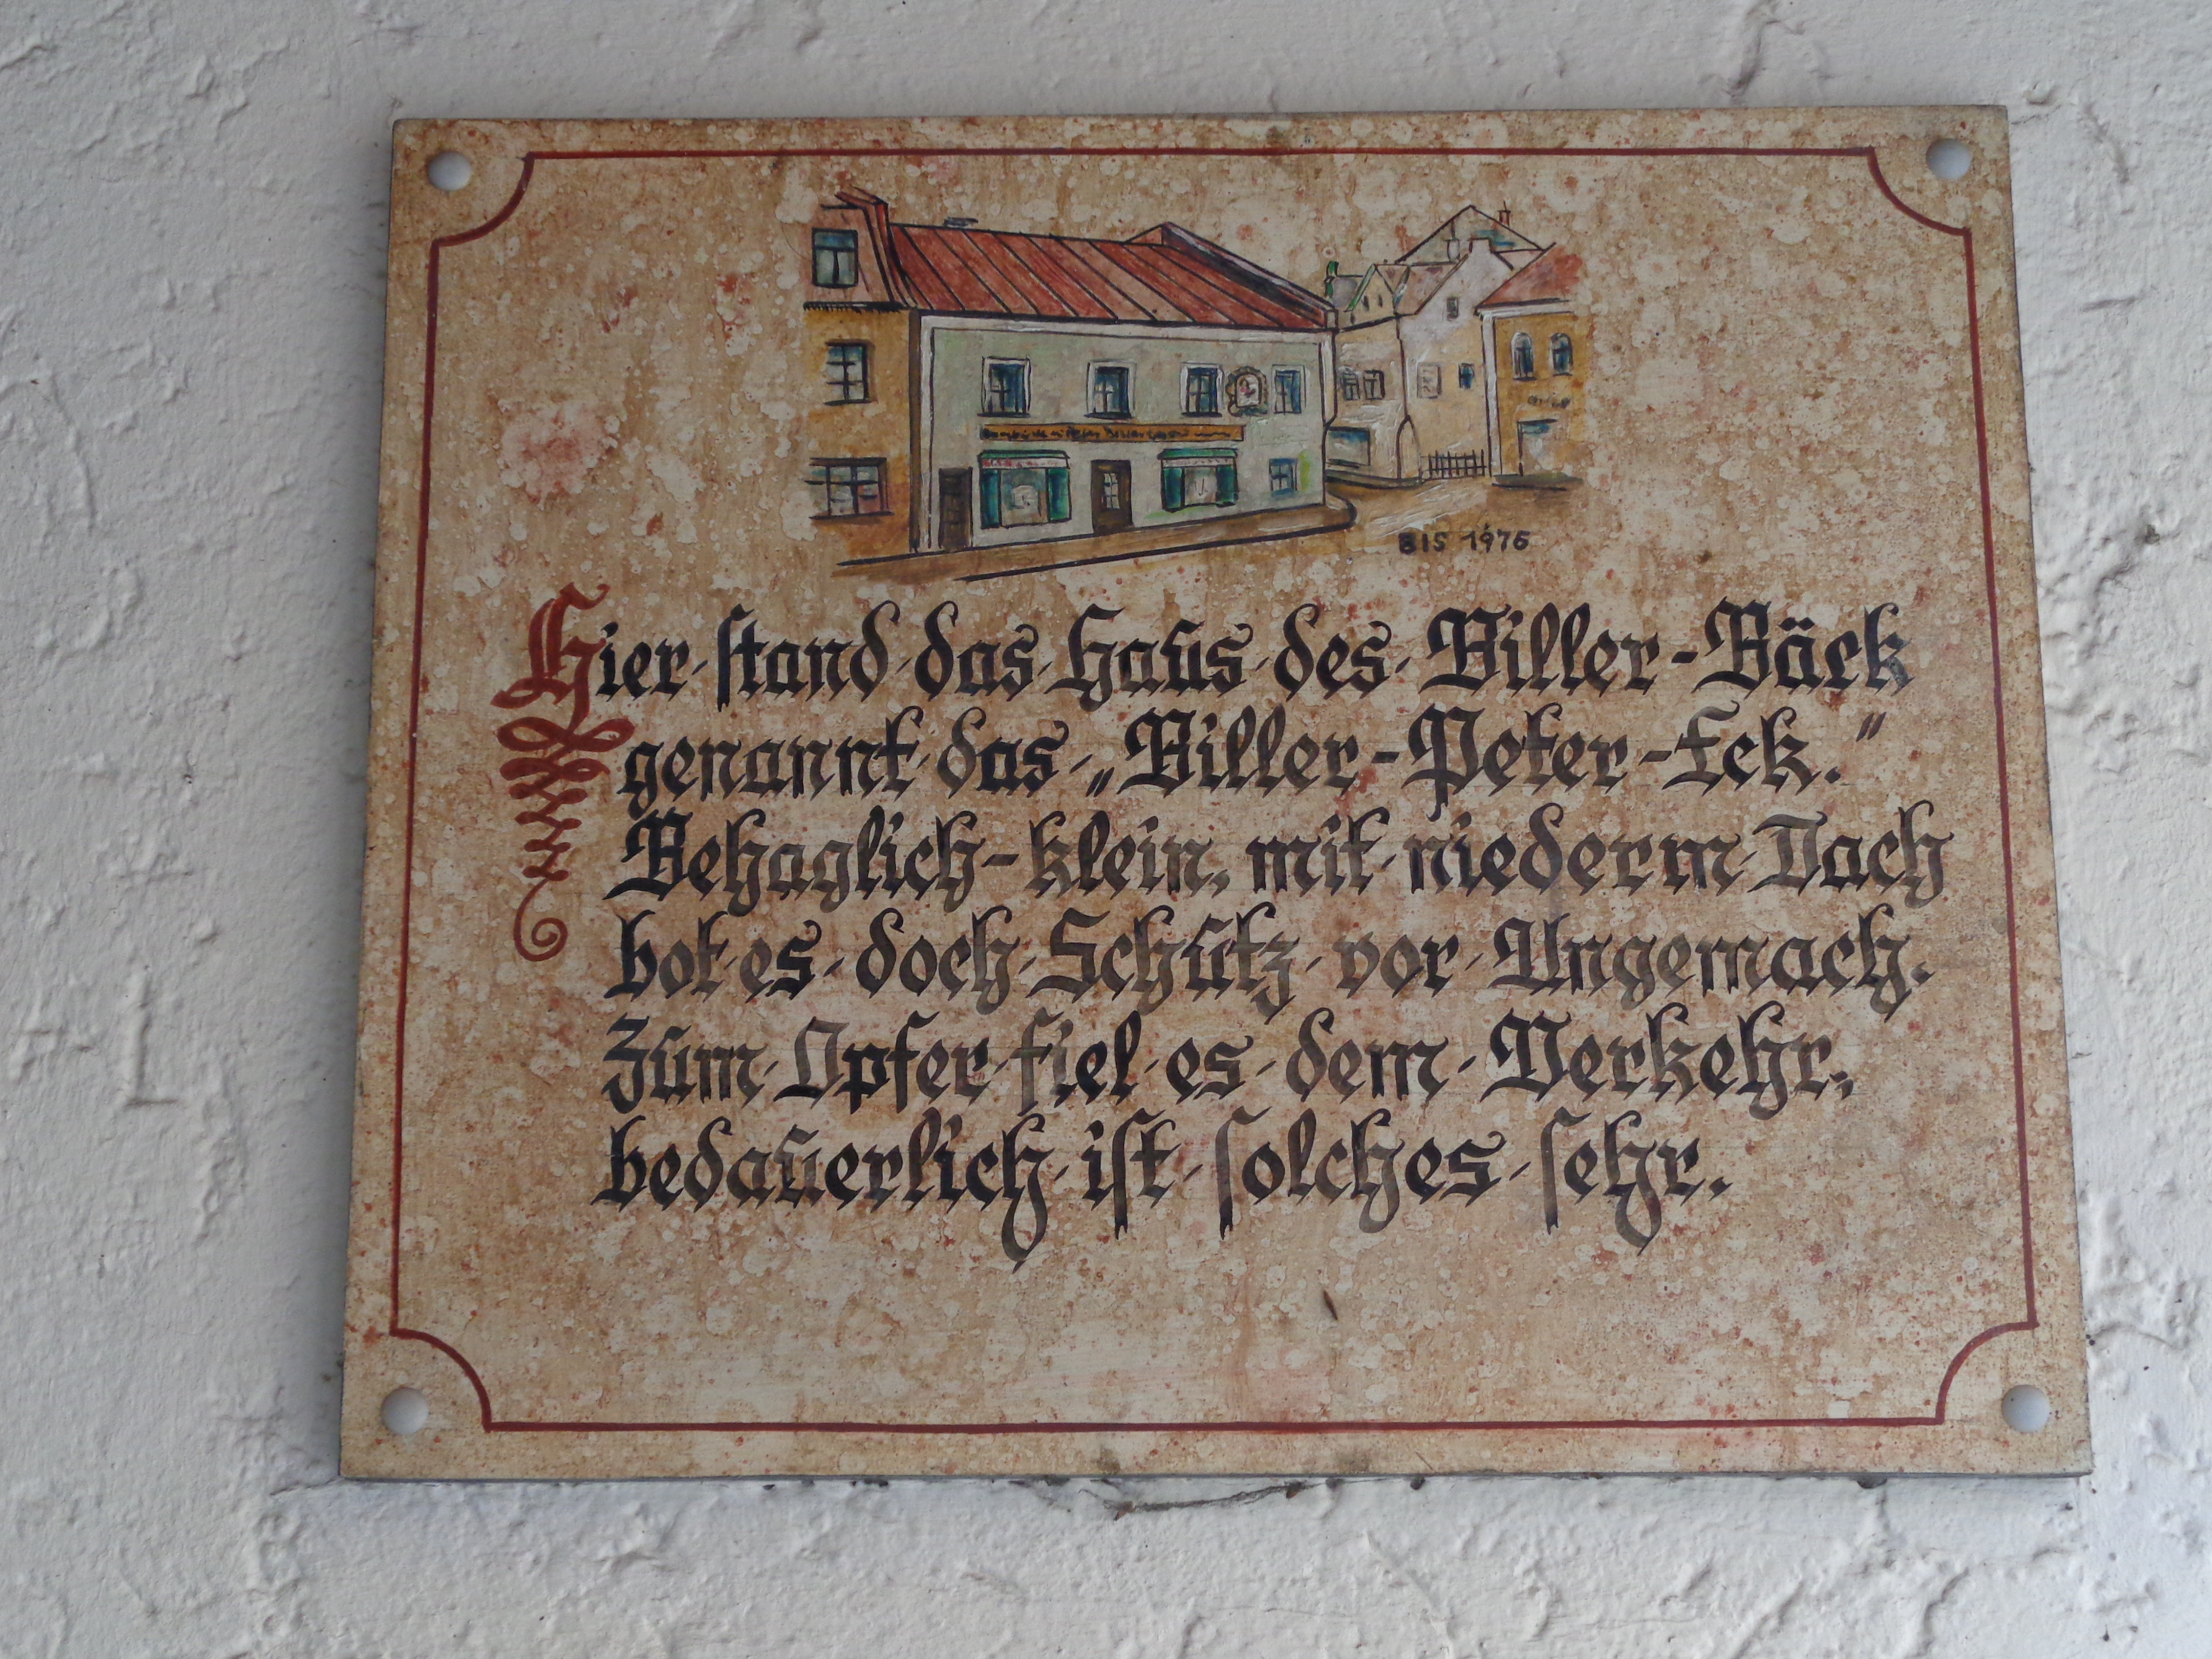 BIS 1976
Hier·stand·das·Haus·des·Biller-Bäck
genannt·das·„Biller-Peter-Eck."
Behaglich-klein, mit·niederm·Dach
bot·es·doch·Schutz·vor·Ungemach.
Zum·Opfer·fiel·es·dem·Verkehr,
bedauerlich·ist·solches·sehr.